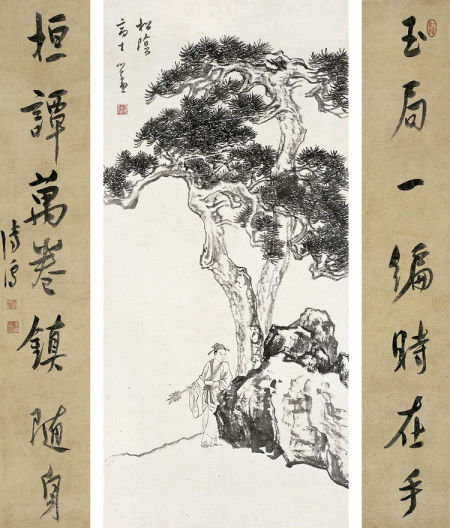 玉局一編時在手
松陰
高士 心畬
桓譚萬卷鎮隨身
溥儒